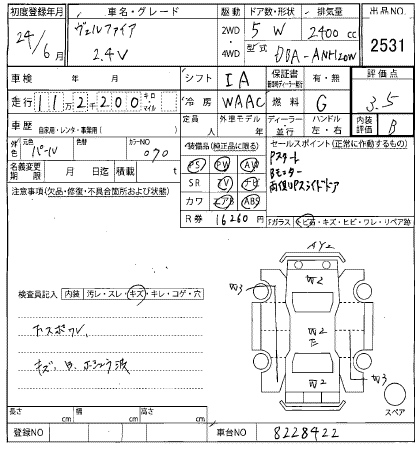 初度登録年月 車名・グレード 駆動 ドア数・形状 排気量 出品NO
24/6月 ヴェルファイア 2.4V 2WD・4WD 5 W 2400 cc 2531
型式 DBA-ANH20W
車検 年 月 シフト IA 保証書 有・無 評価点
走行 112200 キロ・マイル 冷房 WAAC 燃料 G 3.5
車歴 自家用・レンタ・事業用( ) 定員 人 外車モデル 年 ディーラー 並行 ハンドル 左・右 内装評価 B
色 元色 パール 色替 カラーNO 070 装備品(純正品に限る) セールスポイント(正常に作動するもの)
名義変更期限 月 日迄 積載 t PS PW AW Pスタート
注意事項(欠品・修復・不具合箇所および状態) SR TV ナビ Bモニター
カワ エアB ABS 両側Pスライドドア
R券 16260円 Fガラス キビ箱・キズ・ヒビ・ワレ・リペア跡
AY2
W2
W3
検査員記入 内装 汚レ・スレ・キズ・キレ・コゲ・穴
W2
W3
W2
スペア
長さ cm 幅 cm 高さ cm
登録NO 車台NO 8228422